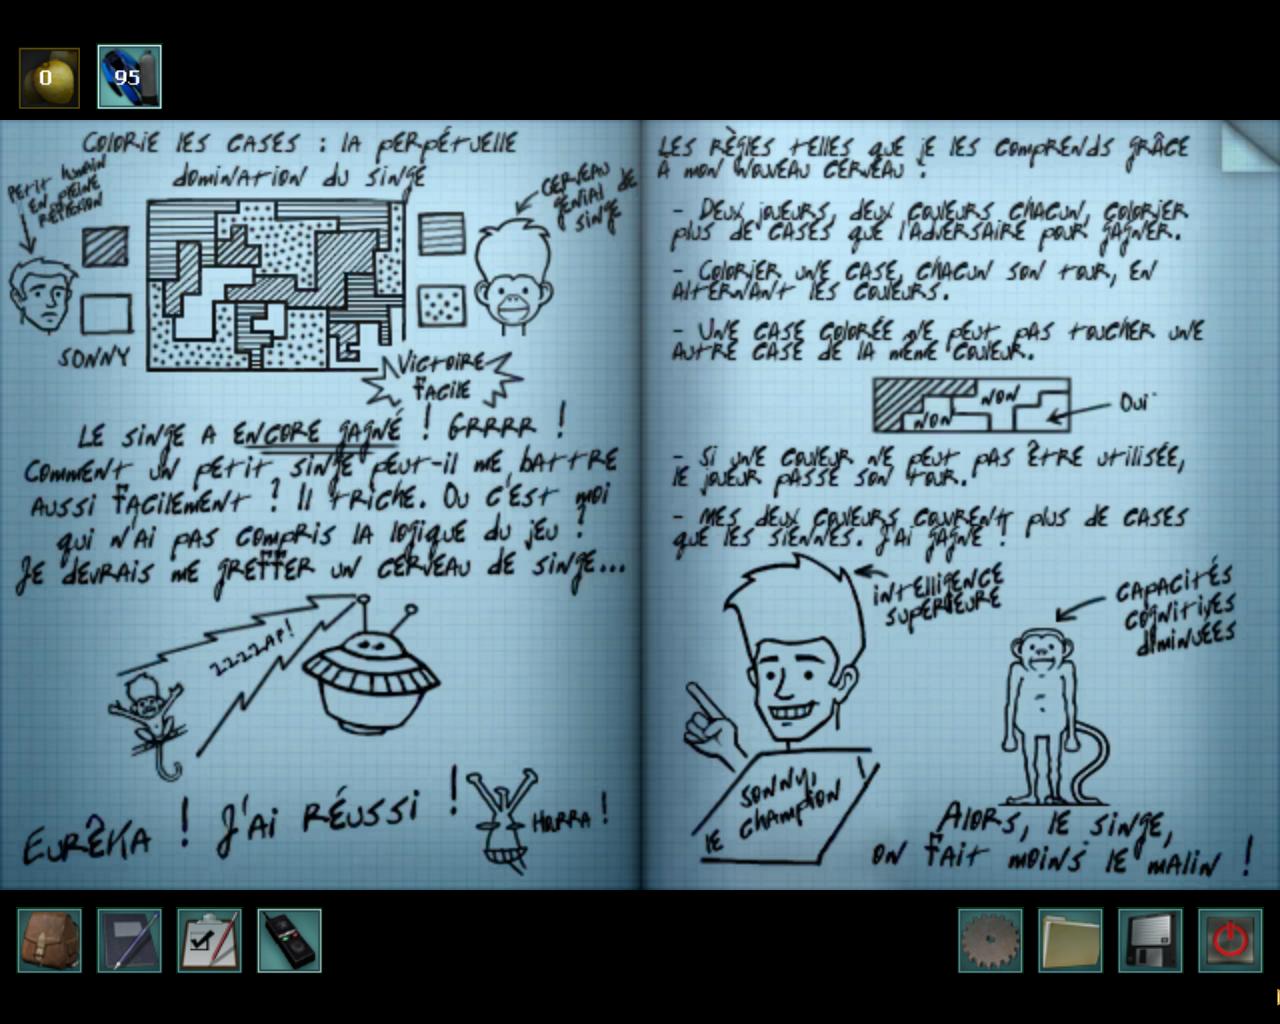 0
95
COLORIE LES CASES : LA PERPÉTUELLE
DOMINATION DU SINGE
PETIT HUMAIN
EN PLEINE
RÉFLEXION
CERVEAU DE
GÉNIAL
SINGE
SONNY
VICTOIRE
FACILE
LE SINGE A ENCORE GAGNÉ ! GRRRR !
COMMENT UN PETIT SINGE PEUT-IL ME BATTRE
AUSSI FACILEMENT ? IL TRICHE. OU C'EST MOI
QUI N'AI PAS COMPRIS LA LOGIQUE DU JEU ?
JE DEVRAIS ME GREFFER UN CERVEAU DE SINGE...
ZZZZAP!
EURÊKA ! J'AI RÉUSSI !
HURRA !
LES RÈGLES TELLES QUE JE LES COMPRENDS GRÂCE
À MON NOUVEAU CERVEAU :
- DEUX JOUEURS, DEUX COULEURS CHACUN, COLORIER
PLUS DE CASES QUE L'ADVERSAIRE POUR GAGNER.
- COLORIER UNE CASE, CHACUN SON TOUR, EN
ALTERNANT LES COULEURS.
- UNE CASE COLORÉE NE PEUT PAS TOUCHER UNE
AUTRE CASE DE LA MÊME COULEUR.
NON
NON
OUI
- SI UNE COULEUR NE PEUT PAS ÊTRE UTILISÉE,
LE JOUEUR PASSE SON TOUR.
- MES DEUX COULEURS COUVRENT PLUS DE CASES
QUE LES SIENNES. J'AI GAGNÉ !
INTELLIGENCE
SUPÉRIEURE
CAPACITÉS
COGNITIVES
DIMINUÉES
SONNY,
LE CHAMPION !
ALORS, LE SINGE,
ON FAIT MOINS LE MALIN !